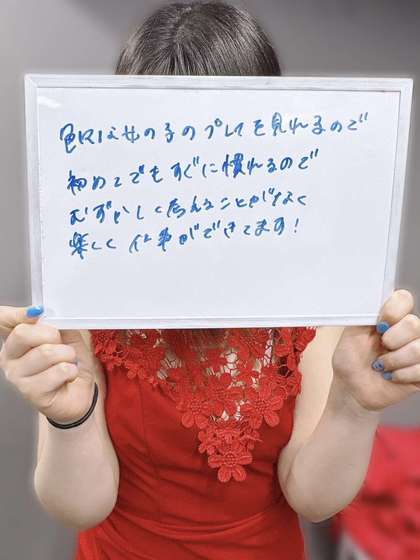 色々な女の子のプレイを見れるので
初めてでもすぐに慣れるので
むずかしく考えることがなく
楽しく仕事ができてます!